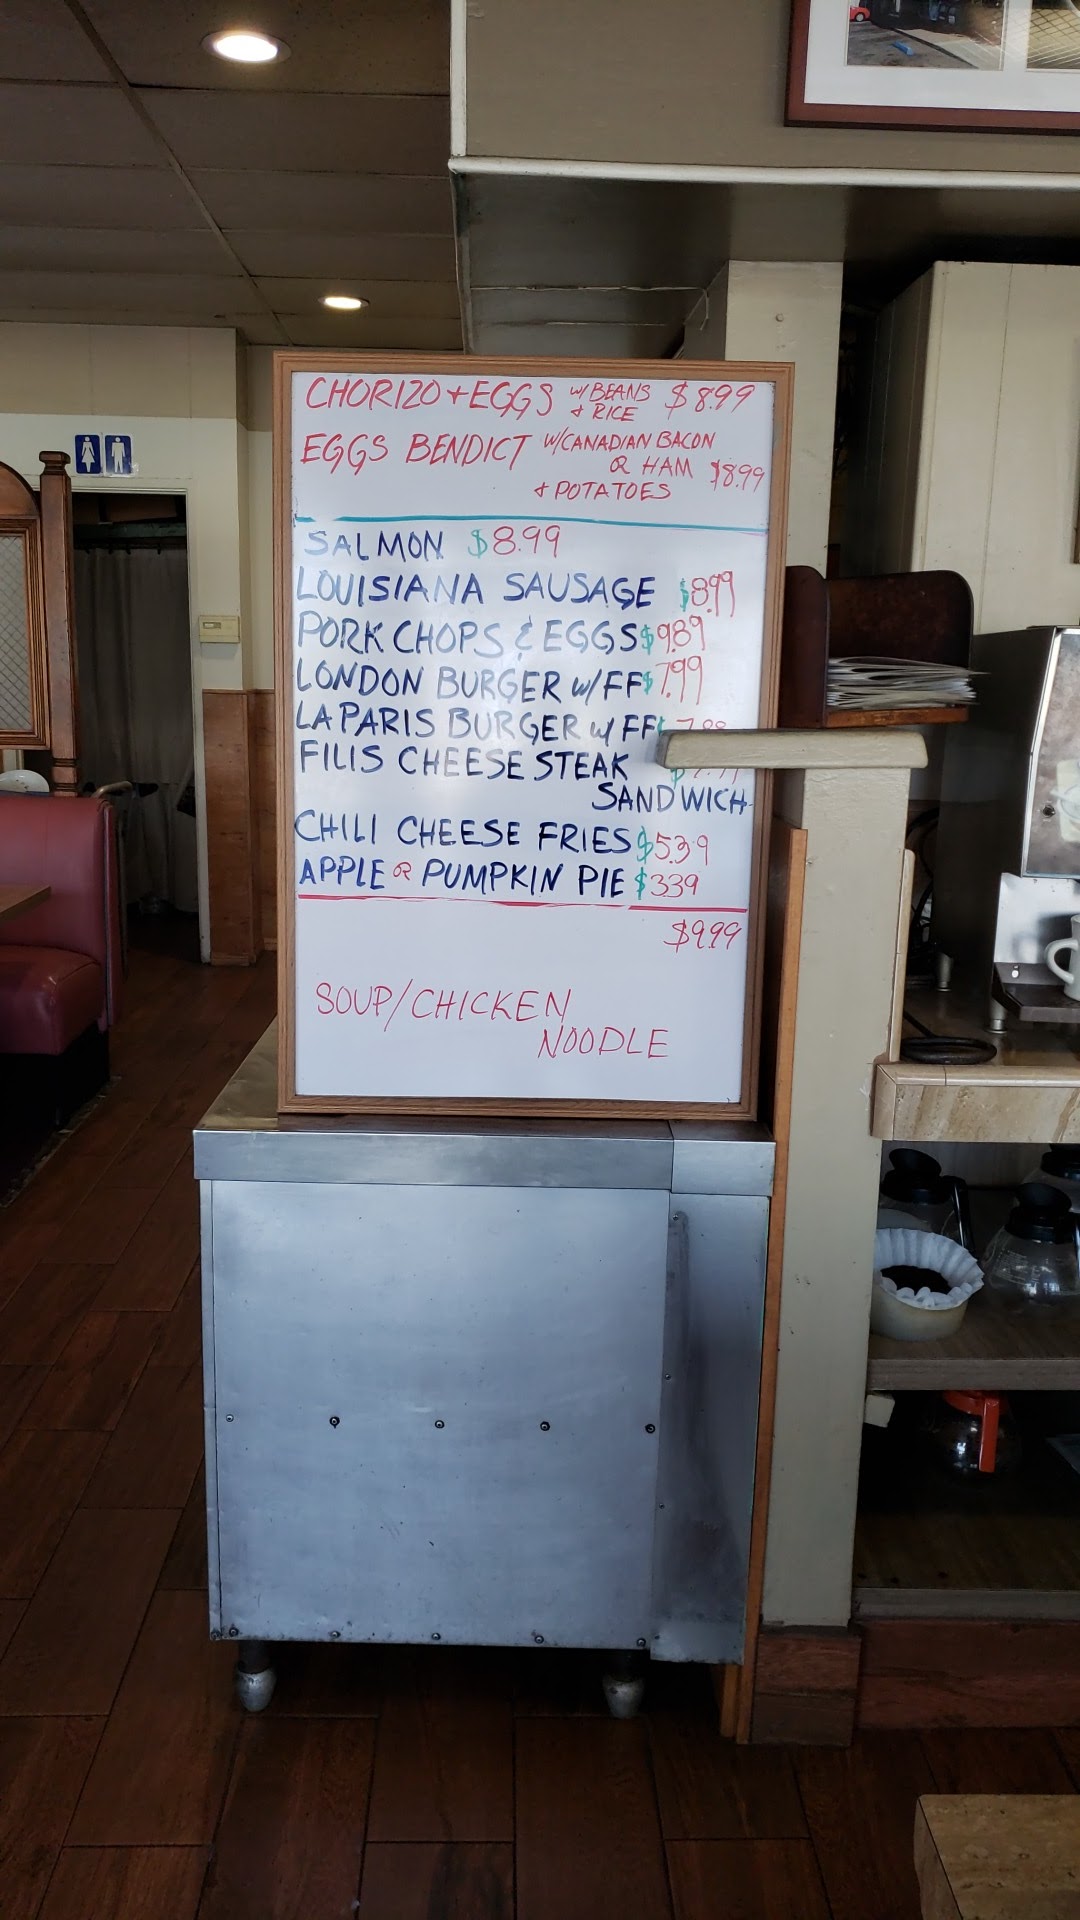 CHORIZO + EGGS W/ BEANS & RICE $8.99
EGGS BENDICT W/CANADIAN BACON
OR HAM $8.99
+ POTATOES
SALMON $8.99
LOUISIANA SAUSAGE $8.99
PORK CHOPS & EGGS $9.89
LONDON BURGER W/FF $7.99
LA PARIS BURGER W/ FF
FILIS CHEESE STEAK
SANDWICH
CHILI CHEESE FRIES $5.39
APPLE OR PUMPKIN PIE $3.39
$9.99
SOUP/CHICKEN
NOODLE